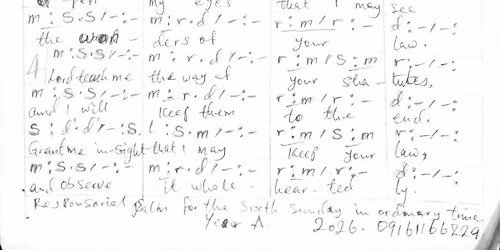 open my eyes that I may see
m : S . S / - : - m : r . d / - : - r : m / r : - d : - / - :
the won ders of your law.
m : S . S / - : - m : r . d / - : - r : m / S : m r : - / - :
4 Lord teach me the way of your sta - tutes,
m : S . S / - : - m : r . d / - : - r : m / r : - d : - / - :
and I will keep them to the end.
S : d' . d' / - : S . l : S . m / - : - r : m / S : m r : - / - :
Grant me in-sight that I may keep your law,
m : S . S / - : - m : r . d / - : - r : m / r : - d : - / - :
and observe it whole - hear - ted ly.
Responsorial psalm for the Sixth Sunday in ordinary time
Year A. 2026. 09161166229